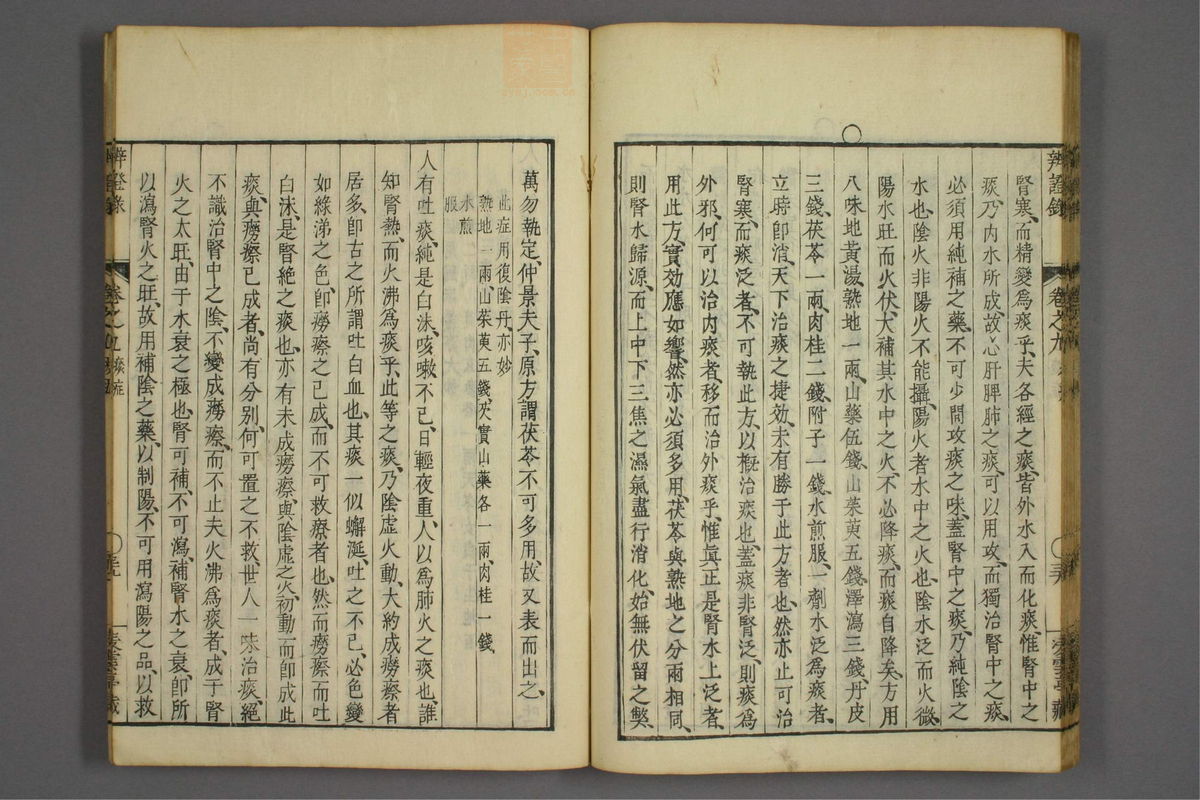 辨證錄 卷之九
腎寒、而精變爲痰乎、夫各經之痰、皆外水入而化痰、惟腎中之
痰、乃内水所成、故心肝脾肺之痰、可以用攻、而獨治腎中之痰、
必須用純補之藥、不可少間攻痰之味、蓋腎中之痰、乃純陰之
水也、陰火非陽火不能攝、陽火者水中之火也、陰水泛而火微、
陽水旺而火伏、大補其水中之火、不必降痰、而痰自降矣、方用
八味地黃湯、熟地一兩、山藥伍錢、山茱萸五錢、澤瀉三錢、丹皮
三錢、茯苓一兩、肉桂二錢、附子一錢、水煎服、一劑水泛爲痰者、
立時即消、天下治痰之捷効、未有勝于此方者也、然亦止可治
腎寒、而痰泛者、不可執此方、以概治痰也、蓋痰非腎泛、則痰爲
外邪、何可以治内痰者、移而治外痰乎、惟眞正是腎水上泛者、
用此方、實効應如響、然亦必須多用、茯苓與熟地之分兩相同、
則腎水歸源、而上中下三焦之濕氣盡行消化、始無伏留之獘、
萬勿執定、仲景夫子、原方謂茯苓不可多用、故又表而出之、
此症用復陰丹、亦妙
熟地一兩、山茱萸五錢、芡實山藥各一兩、肉桂一錢、
水煎
服
人有吐痰、純是白沫、咳嗽不已、日輕夜重、人以爲肺火之痰也、誰
知腎熱、而火沸爲痰乎、此等之痰、乃陰虚火動、大約成癆瘵者
居多、卽古之所謂吐白血也、其痰一似蠏涎、吐之不已、必色變
如綠涕之色、卽癆瘵之已成、而不可救療者也、然而癆瘵而吐
白沫、是腎絕之痰也、亦有未成癆瘵、與陰虚之火初動而卽成此
痰、與癆瘵已成者、尚有分别、何可置之不救、世人一味治痰、絕
不識治腎中之陰、不變成癆瘵、而不止夫火沸爲痰者、成于腎
火之太旺、由于水衰之極也、腎可補、不可瀉、補腎水之衰、卽所
以瀉腎火之旺、故用補陰之藥、以制陽、不可用瀉陽之品、以救
辨證錄 卷之九 痰症